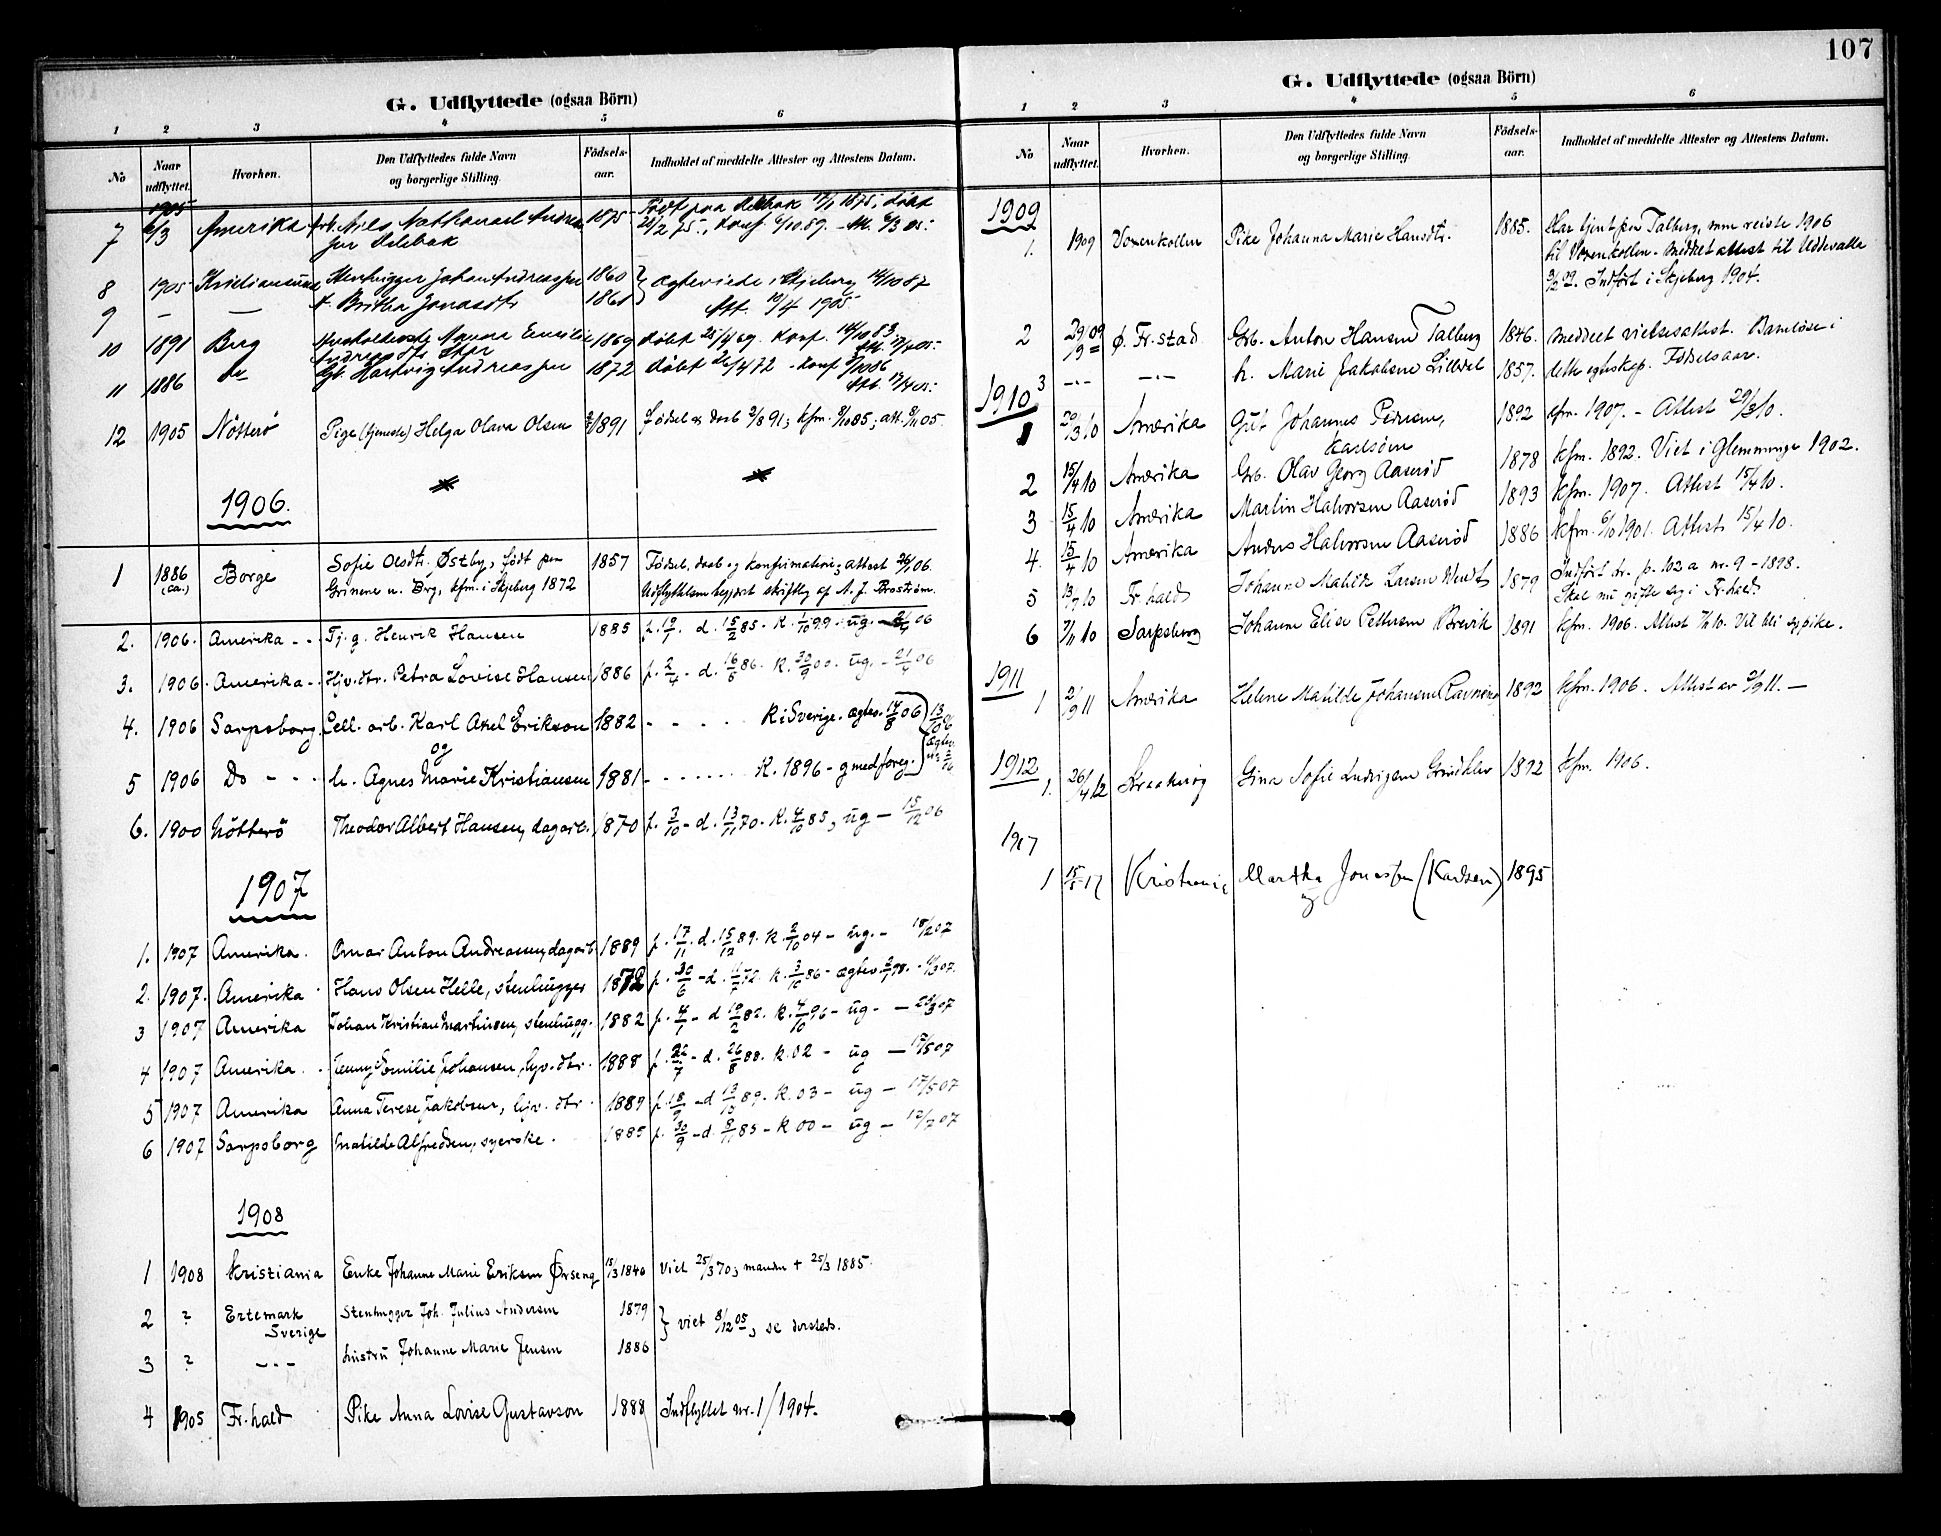 G. Udflyttede (ogsaa Börn)
1 2 3 4 5 6
No Naar udflyttet. Hvorhen. Den Udflyttedes fulde Navn og borgerlige Stilling. Födsels-aar. Indholdet af meddelte Attester og Attestens Datum.
1905
7 6/3 Amerika Arb. Nils Nathanael Andrea 1875 Födt paa 1875; döbt
21/2 75, konf. 6/10 89. - Att. 6/3 05.
8 1905 Kristianssund Stenhugger Johan Andreassen 1860 } Ægteviede i Skjeberg 14/10 87
9 — — h. Britha Jonasdtr 1861 Att. 10/4 1905.
10 1891 Berg Emilie 1869 döbt 25/4 69. Konf. 14/10 83
11 1886 do Hartvig Andreassen 1872 döbt 21/4 72 - Konf 3/10 86
Att. 17/4 05.
12 1905 Nötterö Pige (tjeneste) Helga Olava Olsen 1891 Födsel og daab 2/8 91; kfm. 9/10 85; att. 8/11 05.
1906.
1 1886 (ca.) Borge Sofie Olsdt. Østby, født paa 1857 Fødsel, daab og konfirmation; attest 26/1 06.
Grinene u. Borg, kfm. i Skjeberg 1872 Udflytteln begjært skriftlig af A. J. Broström.
2. 1906. Amerika - - Tj. g. Henrik Hansen 1885 f. 19/1. d. 15/2 85. K. 1/10 99. ug. - 06
3. 1906. Amerika - Hjv. dtr. Petra Lovise Hansen 1886 f. 2/4 - d. 16/5 86. K. 30/9 00. ug. - 21/4 06
4. 1906 Sarpsborg. Cell. arb. Karl Axel Erikson 1882 - - - - K i Sverige. ægtev. 14/8 06
og
5 1906 Do - - - h. Agnes Marie Kristiansen 1881 - - - - - K. 1896 - g med foreg.
6. 1900 Nötterö Theodor Albert Hansen, dagarb. 1870 f. 3/10 - d. 13/11 70. K. 4/10 85, ug - 15/12 06
1907
1. 1907 Amerika. Omar Anton Andreassen, dagarb. 1889 f. 17/11. d. 15/12 89. K. 2/10 04 - ug. - 18/2 07
2. 1907. Amerika Hans Olsen Helle, stenhugger 1872 f. 30/6 - d. 11/7 72. K. 3/10 86 - ægtev. 2/7 98. - 4/3 07.
3 1907 Amerika Johan Kristian Martinsen, stenhugg. 1882 f. 4/1 - d 19/2 82. K. 4/10 96 - ug. - 23/3 07
4 1907 Amerika. Jenny Emilie Johansen, hjv. dtr. 1888 f. 22/7 - d. 26/8 88. K. 02 - ug - 15/5 07
5 1907 Amerika Anna Terese Jakobsen, hjv. dtr 1889 f. 18/9 - d 13/10 89. K. 03 - ug - 17/5 07
6 1907 Sarpsborg Matilde Alfredsen, syerske. 1885 f. 30/9 - d. 8/11 85 - K 00 - ug - 12/7 07
1908
1 1908 Kristiania Enke Johanne Marie Eriksen Ørseng 15/3 1846 Viet 25/3 70; manden + 25/3 1885.
2 ? Ertemark Stenhugger Joh. Julius Andersen 1879 } viet 8/12 05, se dersteds.
Sverige
3 ? - - - hustru Johanne Marie Jensen 1886
4 1905 Fr.hald Pike Anna Lovise Gustavson 1888 Indflyttet nr. 1/1904.
107
G. Udflyttede (ogsaa Börn)
1 2 3 4 5 6
No Naar udflyttet. Hvorhen. Den Udflyttedes fulde Navn og borgerlige Stilling. Fødsels-aar. Indholdet af meddelte Attester og Attestens Datum.
1909
1. 1909 Voxenkollen Pike Johanna Marie Hansdtr. 1885. Har tjent paa Talberg, som reiste 1906
til Voxenkollen. Meddelt attest til Uddevalla
9/2 09. Indført i Skjeberg 1904.
2 29/9 09 Ø. Fr.stad Grb. Anton Hansen Talberg 1846. meddelt vielsesattest. Barnløse i
3 -.- -.- h. Marie Jakobsen Lilledal 1857. dette egteskap. Fødselsaar.
1910
1 20/3 10 Amerika Gut Johannes Pedersen, 1892 kfm. 1907. - Attest 29/3 10.
Karlsøen
2 15/4 10 Amerika Grb. Olav Georg Aaserød 1878 kfm. 1892. Viet i Glemminge 1902.
3 15/4 10 Amerika Martin Halvorsen Aaserød 1893 kfm. 1907. Attest 15/4 10.
4. 15/4 10 Amerika Anders Halvorsen Aaserød 1886 kfm. 6/10 1901. Attest 15/4 10.
5 13/7 10 Fr.hald Johanne Matilde Larsen 1879 Indført dr. p. 102 a nr. 9 - 1898.
Skal nu gifte seg i Fr.hald
6 7/11 10 Sarpsborg Johanne Elise Pettersen Brevik 1891 kfm. 1906. Attest 7/11 10. Vil bli sypike.
1911
1 2/9 11 Amerika Helene Matilde Johansen Ravneng 1892 kfm. 1906. Attest av 2/9 11. —
1912
1. 26/4 12 Kraakerøy Gina Sofie Ludvigsen Grindklev 1892 kfm. 1906.
1917
1 15/5 17 Kristiania Martha Jonassen (Karlsen) 1895